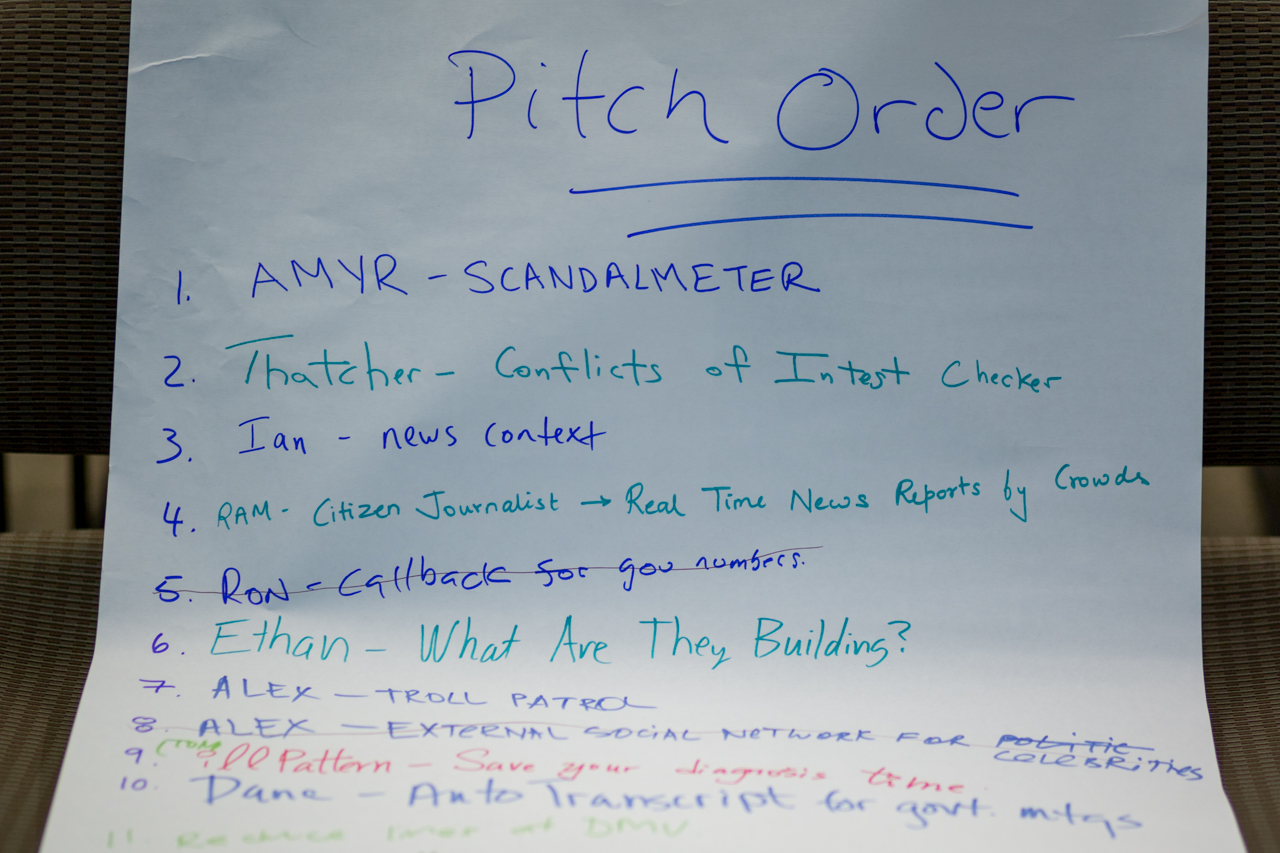 Pitch Order
1. AMYR - SCANDALMETER
2. Thatcher - Conflicts of Intest Checker
3. Ian - news context
4. RAM - Citizen Journalist → Real Time News Reports by Crowds
5. RON - Callback for gov numbers.
6. Ethan - What Are They Building?
7. ALEX - TROLL PATROL
8. ALEX - EXTERNAL SOCIAL NETWORK FOR POLITIC CELEBRITIES
9. (TOM) ill Pattern - Save your diagnosis time
10. Dane - Auto Transcript for govt. mtgs
11. Reduce lines at DMV